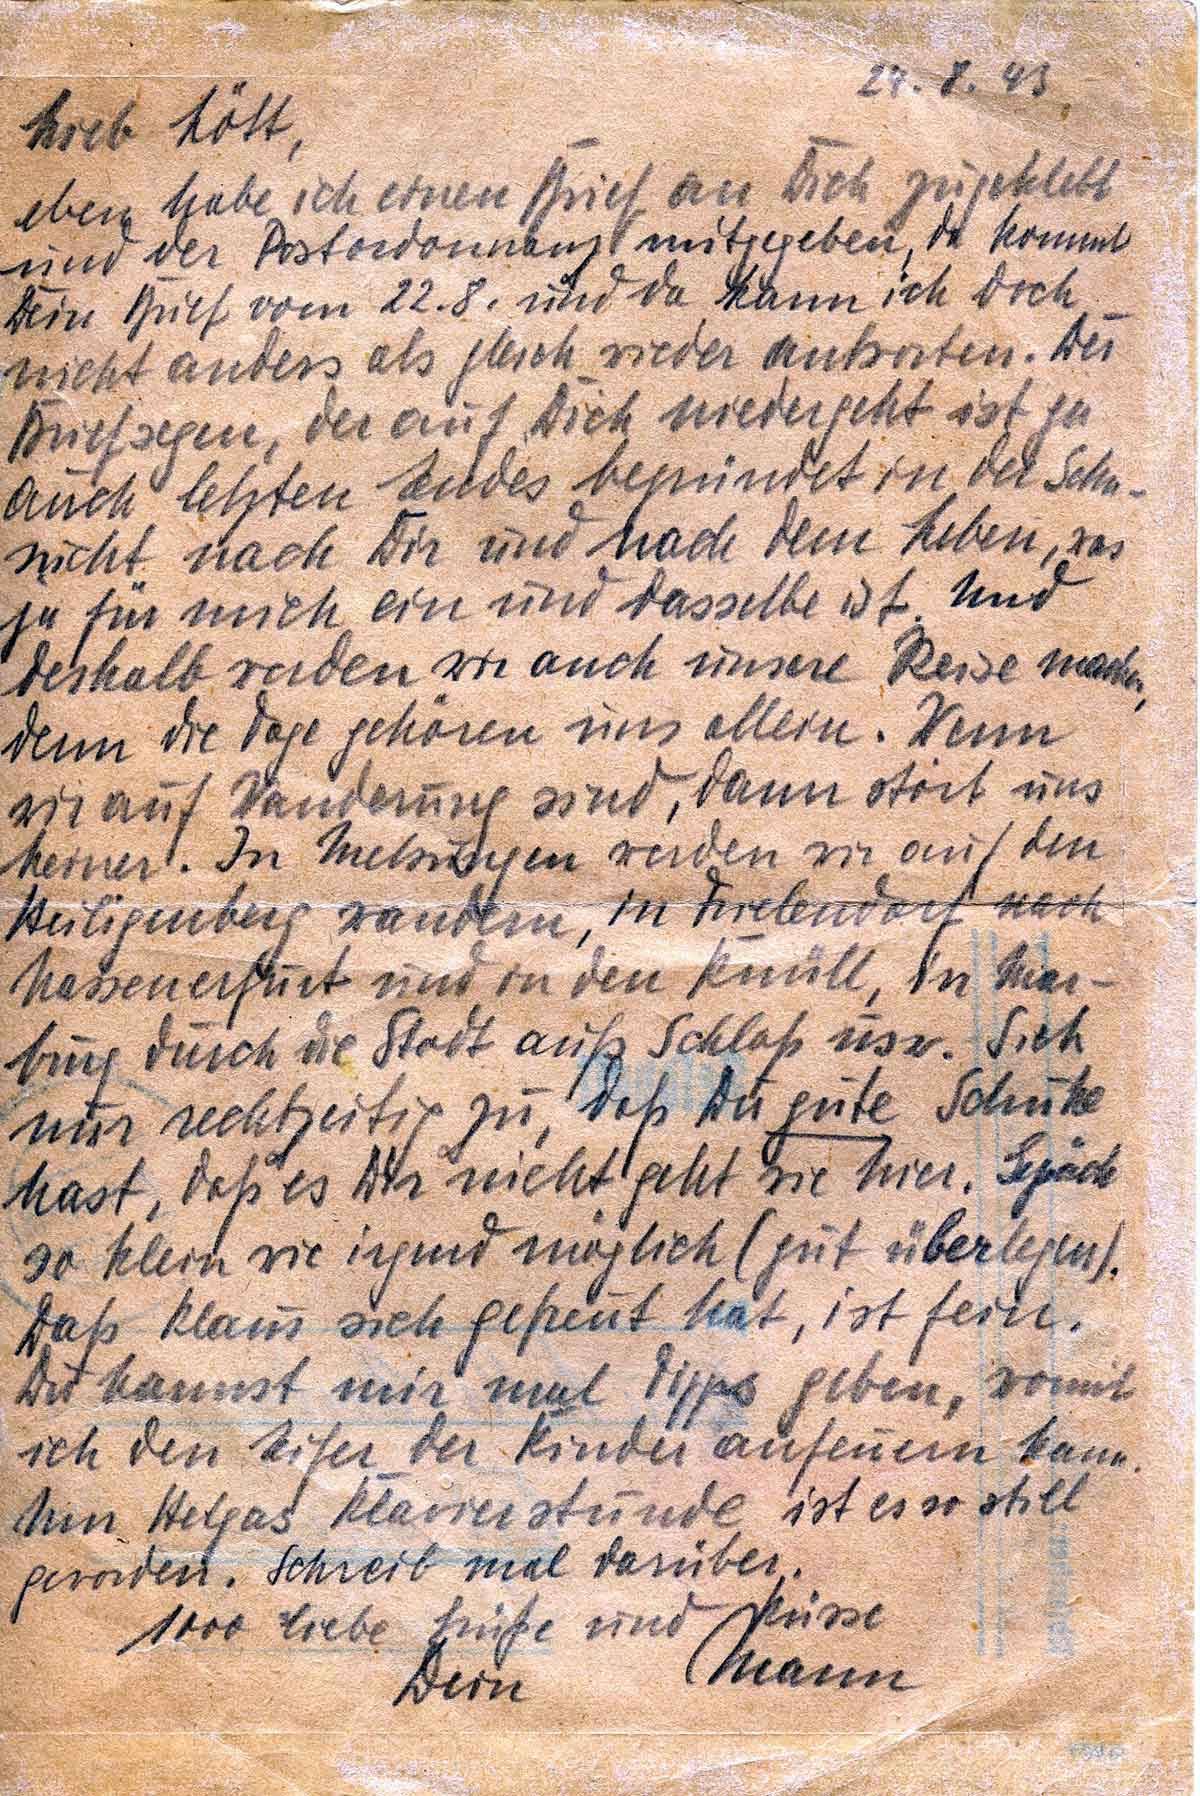 24.8.43
Lieb Lött,
eben habe ich einen Brief an Dich zugeklebt
und der Postordonnanz mitgegeben, da kommt
Dein Brief vom 22.8. und da kann ich doch
nicht anders als gleich wieder antworten. Der
Briefsegen, der auf Dich niedergeht ist ja
auch letzten Endes begründet in der Sehn-
sucht nach Dir und nach dem Leben, was
ja für mich ein und dasselbe ist. Und
deshalb werden wir auch unsere Reise machen,
denn die Tage gehören uns allein. Wenn
wir auf Wanderung sind, dann stört uns
keiner. In Melsungen werden wir auf den
Heiligenberg wandern, in nach
Wassenerfurt und in den Knüll, in Mar-
burg durch die Stadt aufs Schloß usw. Sieh
nur rechtzeitig zu, daß Du gute Schuhe
hast, daß es Dir nicht geht wie hier. Gepäck
so klein wie irgend möglich (gut überlegen).
Daß Klaus sich gefreut hat, ist fein.
Du kannst mir mal Tipps geben, womit
ich den Eifer der Kinder anfeuern kann.
Um Helgas Klavierstunde ist es so still
geworden. Schreib mal darüber.
1000 liebe Grüße und Küsse
Dein Mann